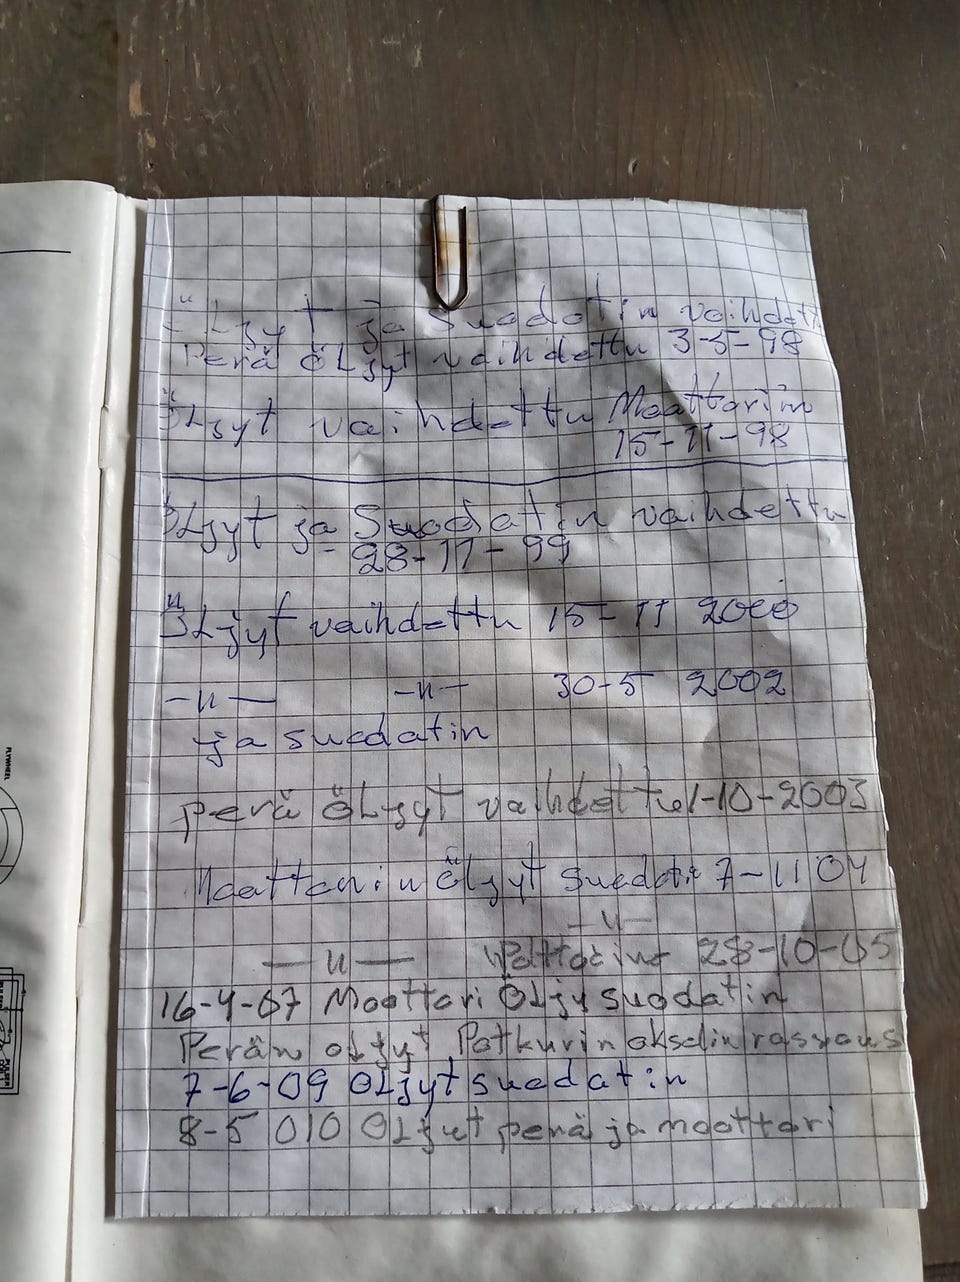 Öljyt ja suodatin vaihdettu
Perä öljyt vaihdettu 3-5-98
Öljyt vaihdettu Moottorin
15-11-98
Öljyt ja Suodatin vaihdettu
28-11-99
Öljyt vaihdettu 15-11 2000
-"- -"- 30-5 2002
ja suodatin
perä öljyt vaihdettu 1-10-2003
Moottorin öljyt suodat 7-11 04
-"-
-"- 28-10-05
16-4-07 Moottori Öljy suodatin
Perän öljyt Potkurin akselin rasvaus
7-6-09 Öljyt suodatin
8-5 010 Öljyt perä ja moottori
FLYWHEEL